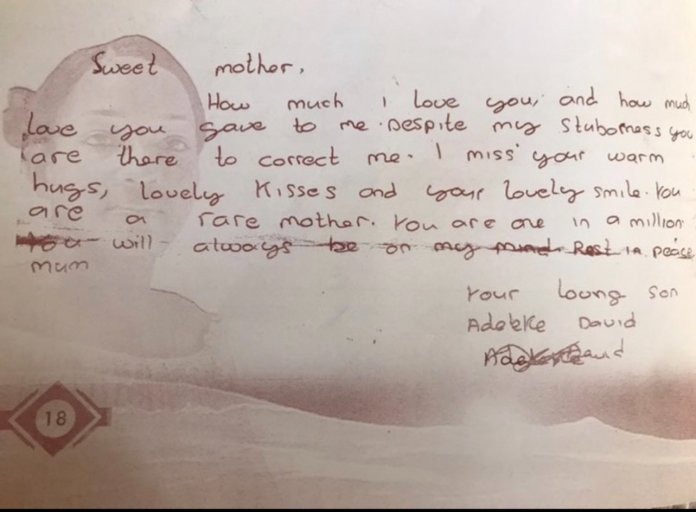 Sweet mother,
How much I love you, and how much
love you gave to me. Despite my Stuborness you
are there to correct me. I miss your warm
hugs, lovely Kisses and your lovely smile. You
are a rare mother. You are one in a million
You will always be on my mind. Rest in peace
mum
Your loving son
Adekke David
18